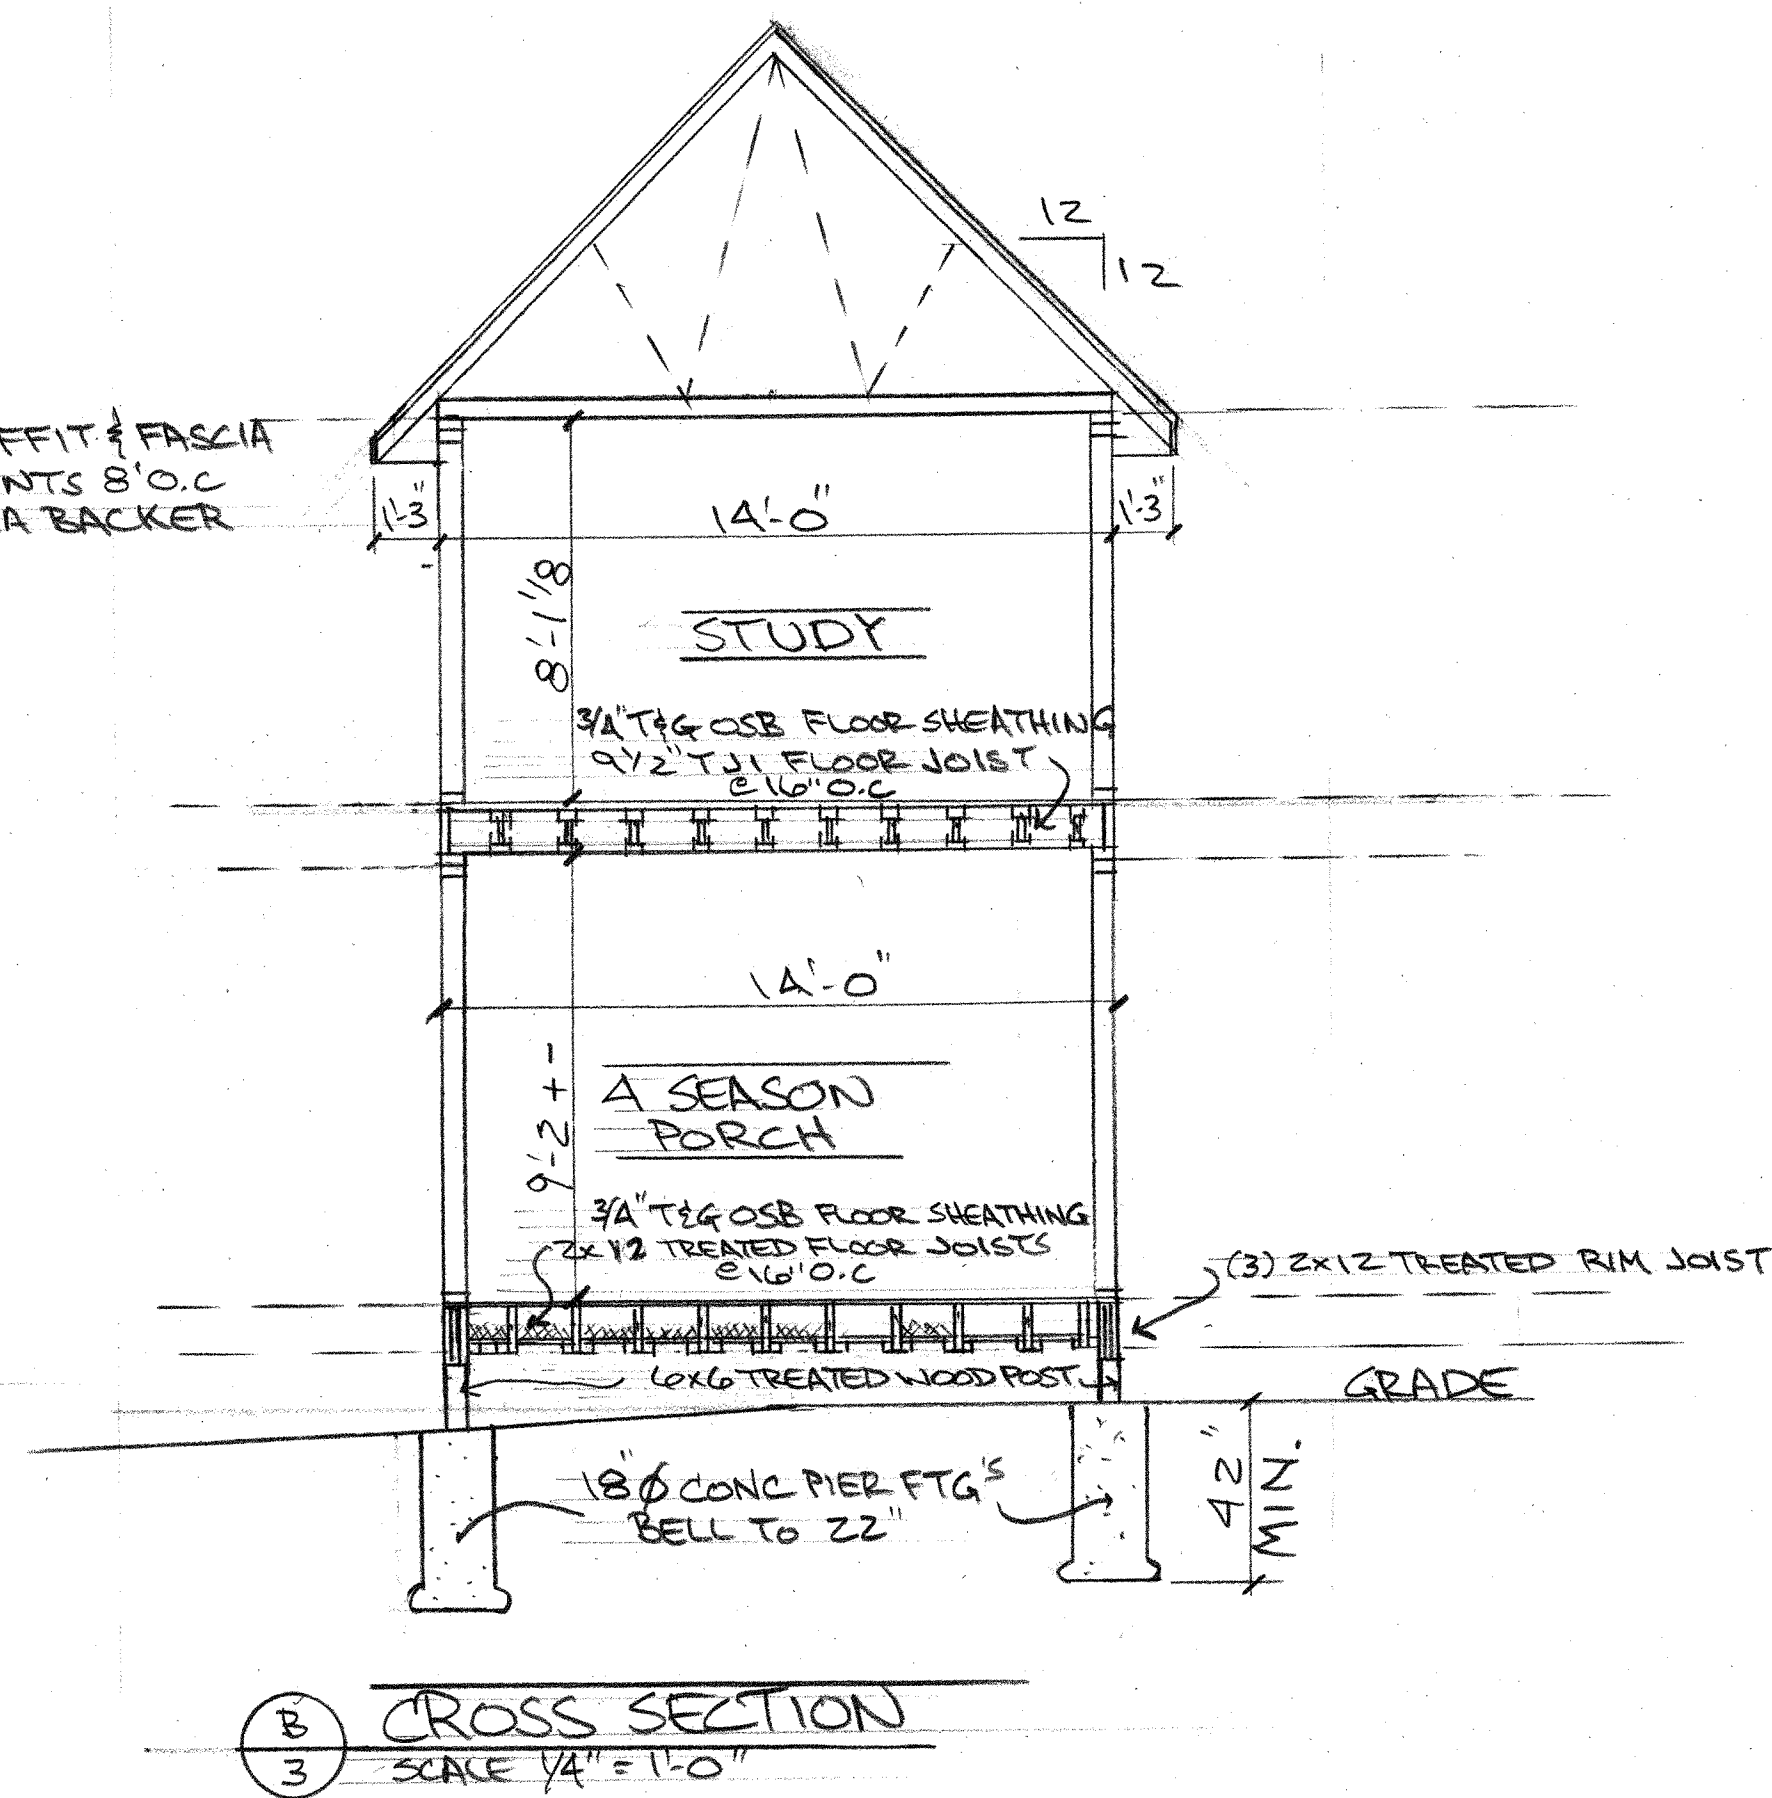 12
12
FFIT & FASCIA
NTS 8' O.C
A BACKER
1'-3"
14'-0"
1'-3"
8'-1 1/8
STUDY
3/4" T&G OSB FLOOR SHEATHING
9 1/2" TJI FLOOR JOIST
@ 16" O.C
14'-0"
9'-2 + -
4 SEASON
PORCH
3/4" T&G OSB FLOOR SHEATHING
2x12 TREATED FLOOR JOISTS
@ 16" O.C
(3) 2x12 TREATED RIM JOIST
6x6 TREATED WOOD POST
GRADE
18" Ø CONC PIER FTG'S
BELL TO 22"
42"
MIN.
B
3
CROSS SECTION
SCALE 1/4" = 1'-0"